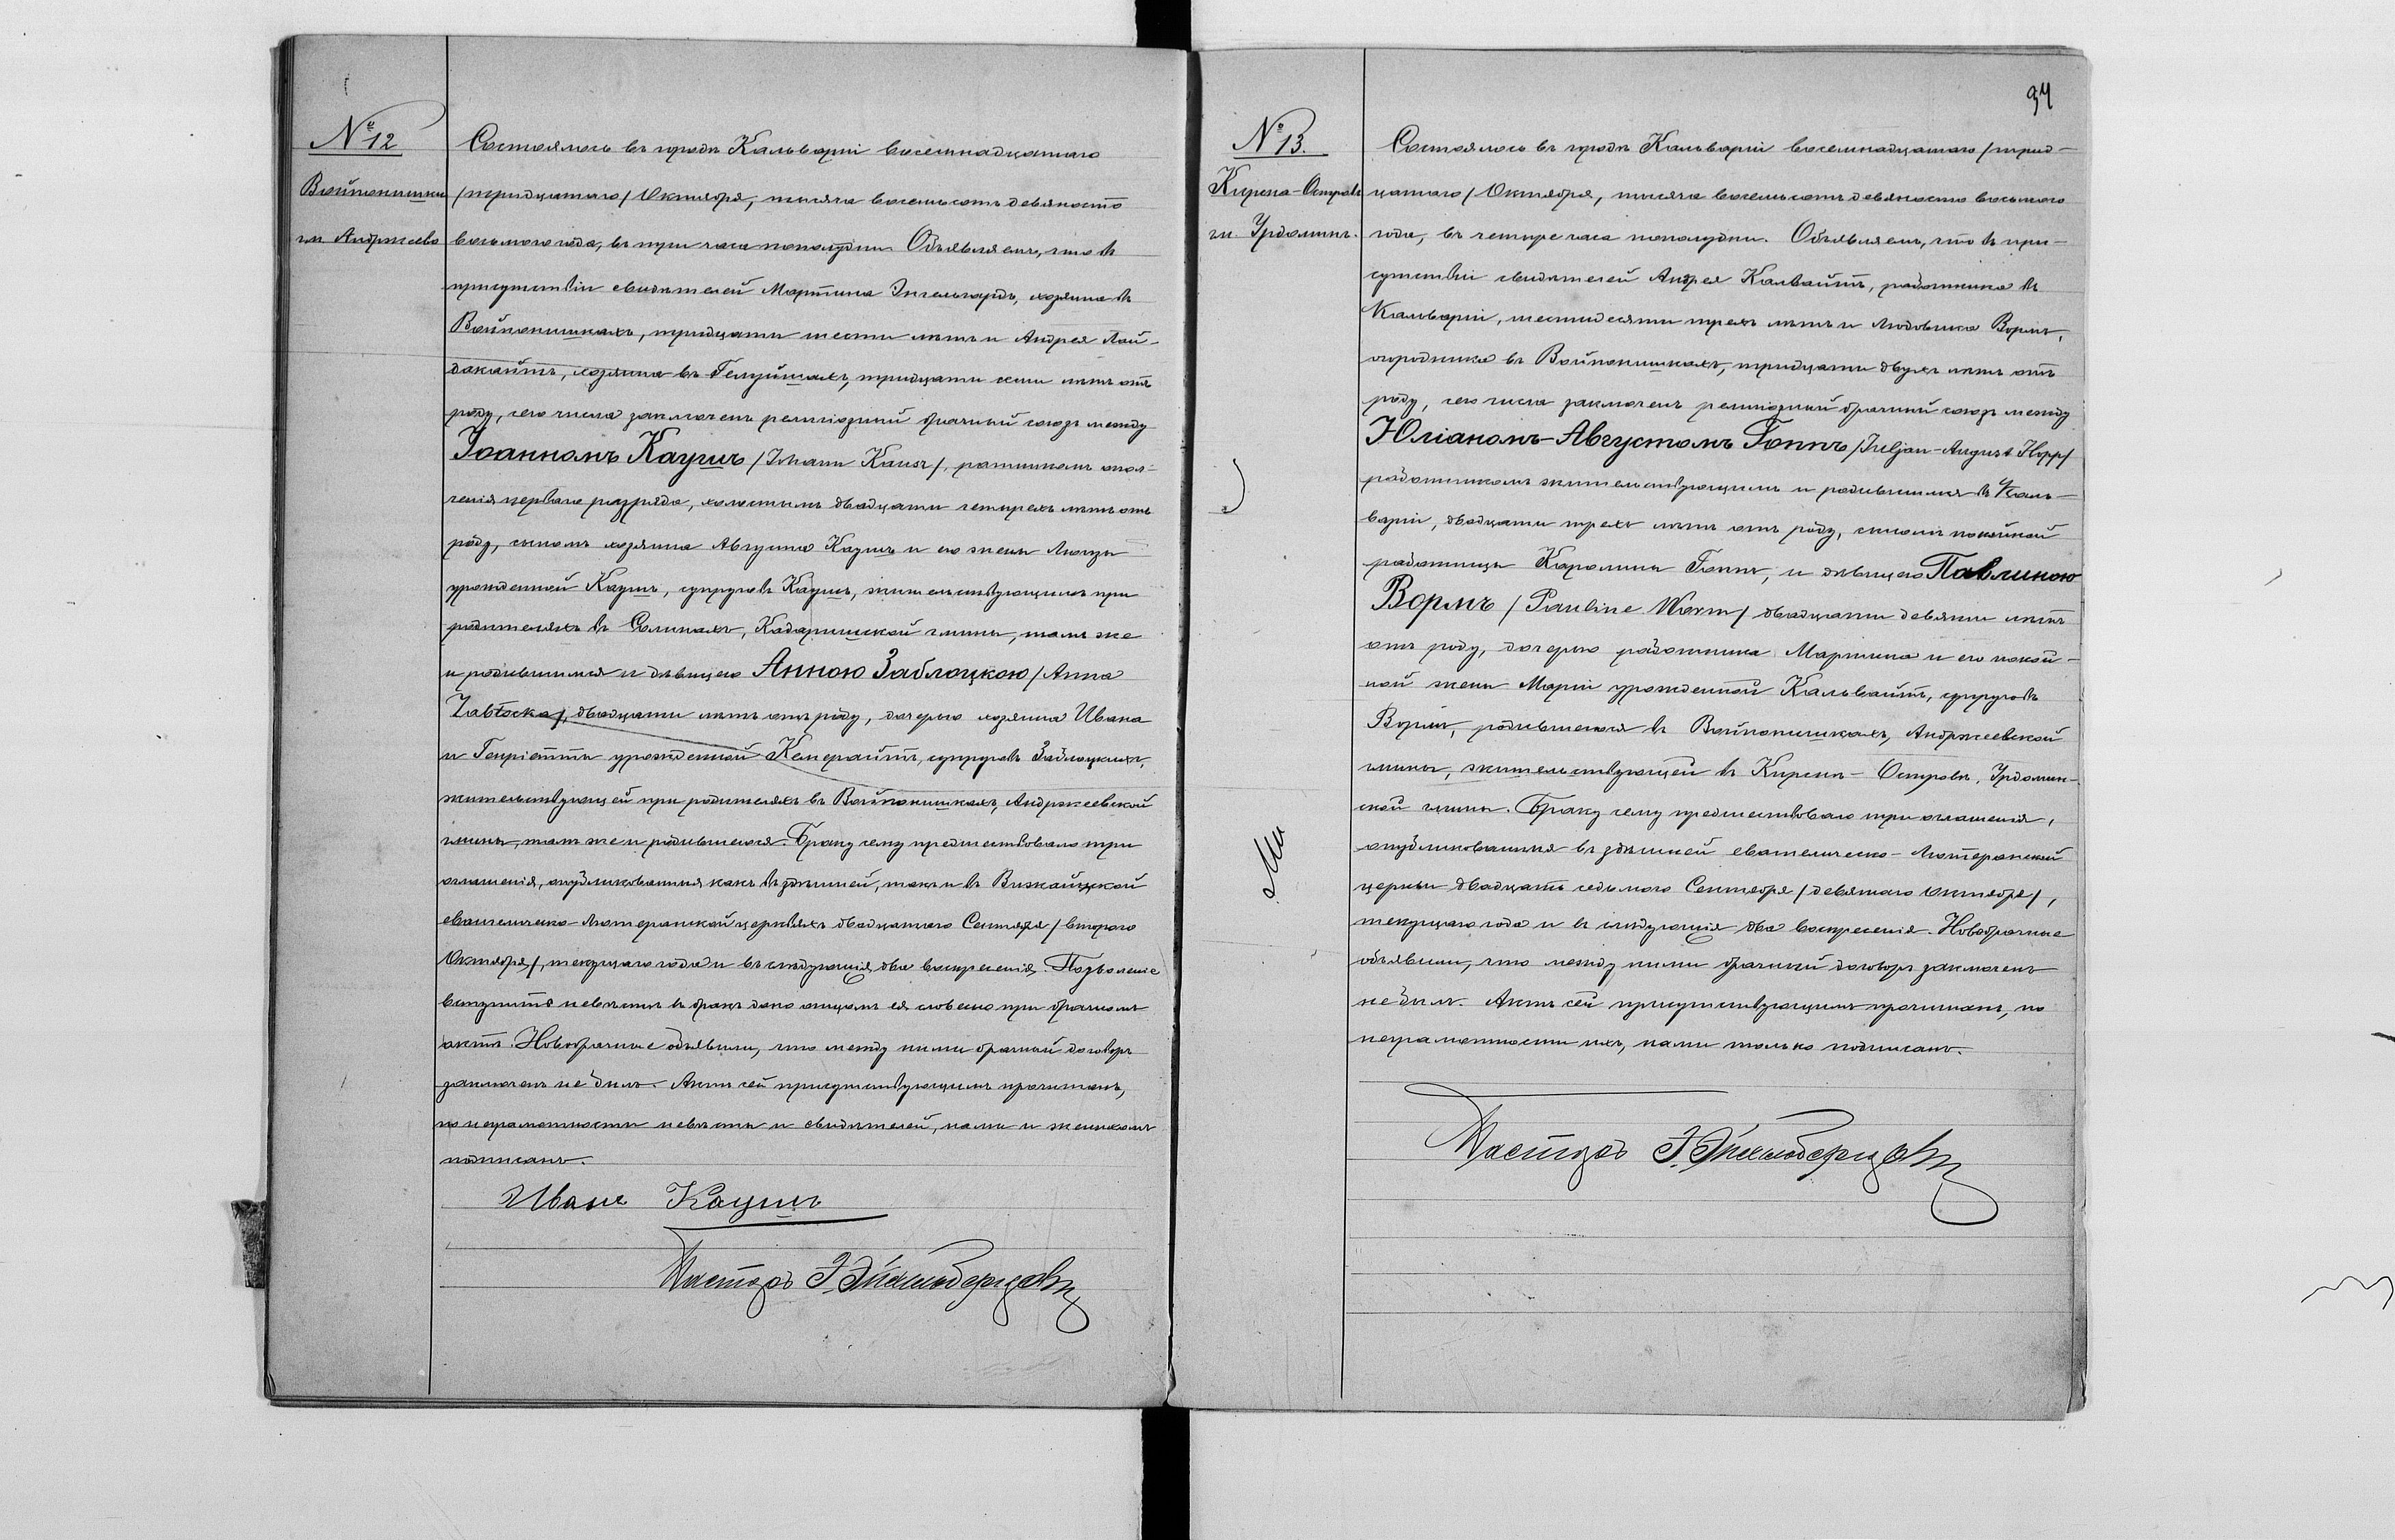 № 12
Войпонишки
гм. Андржеево
Состоялось въ городѣ Кальваріи восемнадцатаго
/тридцатаго/ Октября, тысяча восемьсотъ девяносто
восьмого года, въ три часа пополудни. Объявляемъ, что въ
присутствіи свидѣтелей Мартина Энгельгардъ, хозяина въ
Войпонишкахъ, тридцати шести лѣтъ и Андрея Лой-
докайтъ, хозяина въ тридцати семи лѣтъ отъ
роду, сего числа заключенъ религіозный брачный союзъ между
Іоанномъ Каушъ /Johann Kausz/, ратникомъ опол-
ченія перваго разряда, холостымъ двадцати четырехъ лѣтъ отъ
роду, сыномъ хозяина Августа Каушъ и его жены Луизы
урожденной Каушъ, супруговъ Каушъ, жительствующимъ при
родителяхъ въ Солинахъ, Кадаришской гмины, тамъ же
и родившимся и дѣвицею Анною Заблоцкою /Anna
Zabłocka/, двадцати лѣтъ отъ роду, дочерью хозяина Ивана
и Генріетты урожденной Кемерайтъ, супруговъ Заблоцкихъ,
жительствующей при родителяхъ въ Войпонишкахъ, Андржеевской
гмины, тамъ же и родившеюся. Браку сему предшествовало три
оглашенія, опубликованныя какъ въ здѣшней, такъ и въ Вижайнской
евангелическо-Лютеранской церквяхъ двадцатаго Сентября /второго
Октября/, текущаго года и въ слѣдующія два воскресенія. Позволеніе
вступить невѣстѣ въ бракъ дано отцомъ ея словесно при брачномъ
актѣ. Новобрачные объявили, что между ними брачный договоръ
заключенъ не былъ. Актъ сей присутствующимъ прочитанъ,
по неграмотности невѣсты и свидѣтелей, нами и женихомъ
подписанъ.
Иванъ Каушъ
Пасторъ Э. Эйхельбергеръ
94
№ 13.
Кирсна-Островъ
гм. Урдоминъ.
Состоялось въ городѣ Кальваріи восемнадцатаго /трид-
цатаго/ Октября, тысяча восемьсотъ девяносто восьмого
года, въ четыре часа пополудни. Объявляемъ, что въ при-
сутствіи свидѣтелей Андрея Калвайтъ, работника въ
Кальваріи, шестидесяти трехъ лѣтъ и Людовика Вормъ,
огородника въ Войпонишкахъ, тридцати двухъ лѣтъ отъ
роду, сего числа заключенъ религіозный брачный союзъ между
Юліаномъ-Августомъ Гоппъ /Juljan-August Hopp/
работникомъ жительствующимъ и родившимся въ Каль-
варіи, двадцати трехъ лѣтъ отъ роду, сыномъ покойной
работницы Каролины Гоппъ, и дѣвицею Павлиною
Вормъ /Pauline Worm/ двадцати девяти лѣтъ
отъ роду, дочерью работника Мартина и его покой-
ной жены Маріи урожденной Кальвайтъ, супруговъ
Вормъ, родившеюся въ Войпонишкахъ, Андржеевской
гмины, жительствующей въ Кирсна-Островѣ, Урдомин-
ской гмины. Браку сему предшествовало три оглашенія,
опубликованныя въ здѣшней евангелическо-Лютеранской
церкви двадцать седьмого Сентября /девятаго Октября/,
текущаго года и въ слѣдующія два воскресенія. Новобрачные
объявили, что между ними брачный договоръ заключенъ
не былъ. Актъ сей присутствующимъ прочитанъ, по
неграмотности ихъ, нами только подписанъ.
Пасторъ Э. Эйхельбергеръ